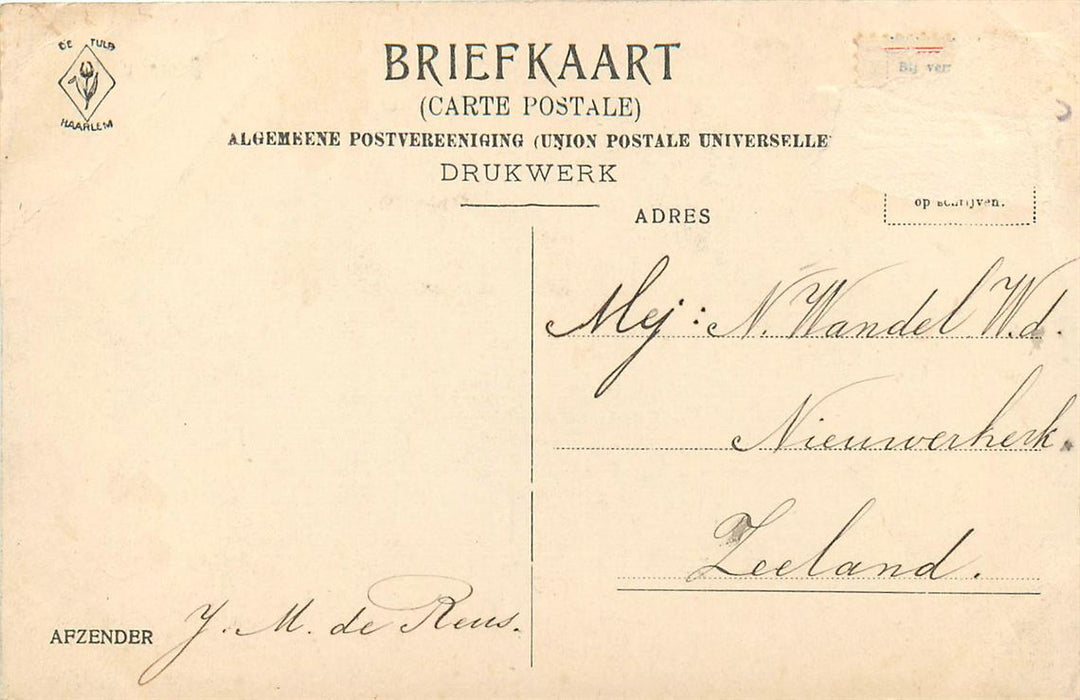 DE TULP
HAARLEM
BRIEFKAART
(CARTE POSTALE)
ALGEMEENE POSTVEREENIGING (UNION POSTALE UNIVERSELLE
DRUKWERK
Bij ver
op schrijven.
ADRES
Mej: N. Wandel W.d.
Nieuwerkerk.
Zeeland.
AFZENDER J. M. de Reus.